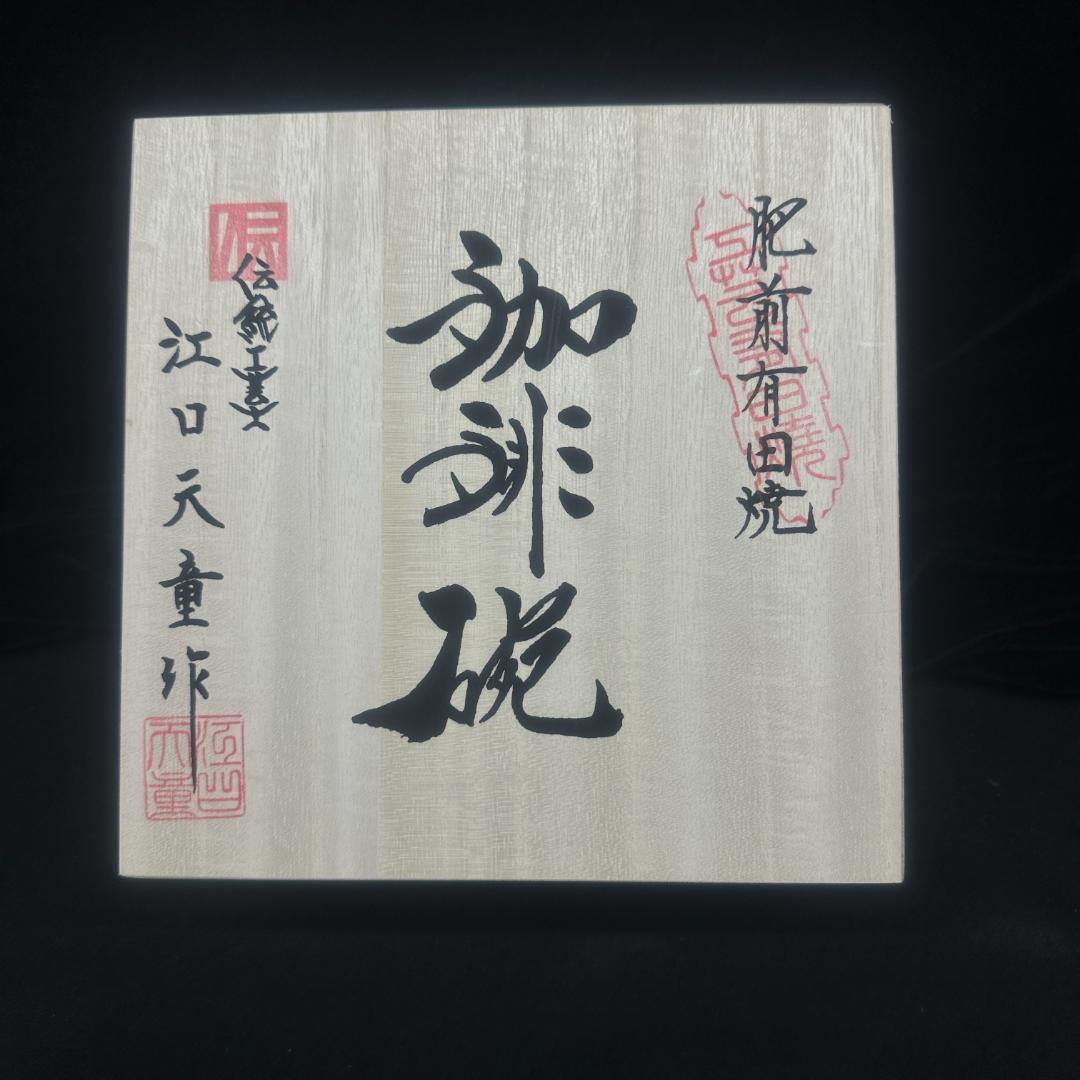 肥前有田焼
珈琲碗
伝統工芸士
江口天童作
江口天童